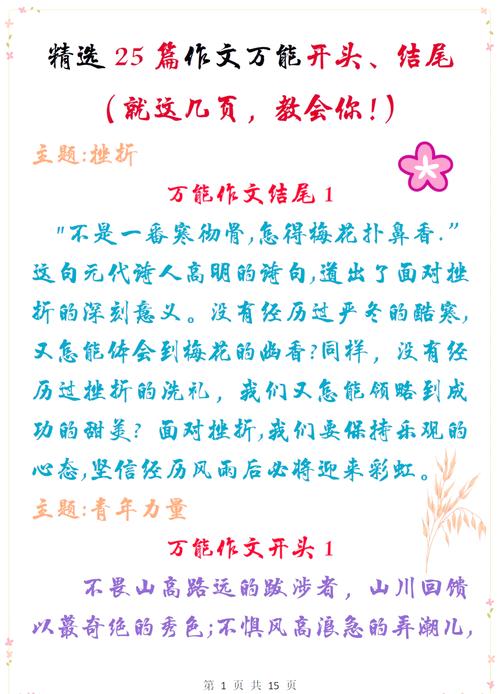 精选 25 篇作文万能开头、结尾
（就这几页，教会你！）
主题:挫折
万能作文结尾 1
"不是一番寒彻骨,怎得梅花扑鼻香.”
这句元代诗人高明的诗句,道出了面对挫
折的深刻意义。没有经历过严冬的酷寒,
又怎能体会到梅花的幽香?同样，没有经
历过挫折的洗礼，我们又怎能领略到成
功的甜美？面对挫折,我们要保持乐观的
心态,坚信经历风雨后必将迎来彩虹。
主题:青年力量
万能作文开头 1
不畏山高路远的跋涉者，山川回馈
以最奇绝的秀色;不惧风高浪急的弄潮儿,
第 1 页 共 15 页